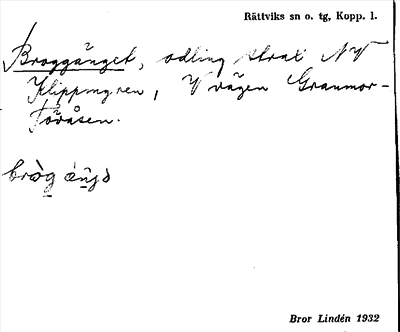 Rättviks sn o. tg, Kopp. l.
Broggänget, odling strax NV
Klippmyren, V vägen Granmor-
Tövåsen.
Bror Lindén 1932